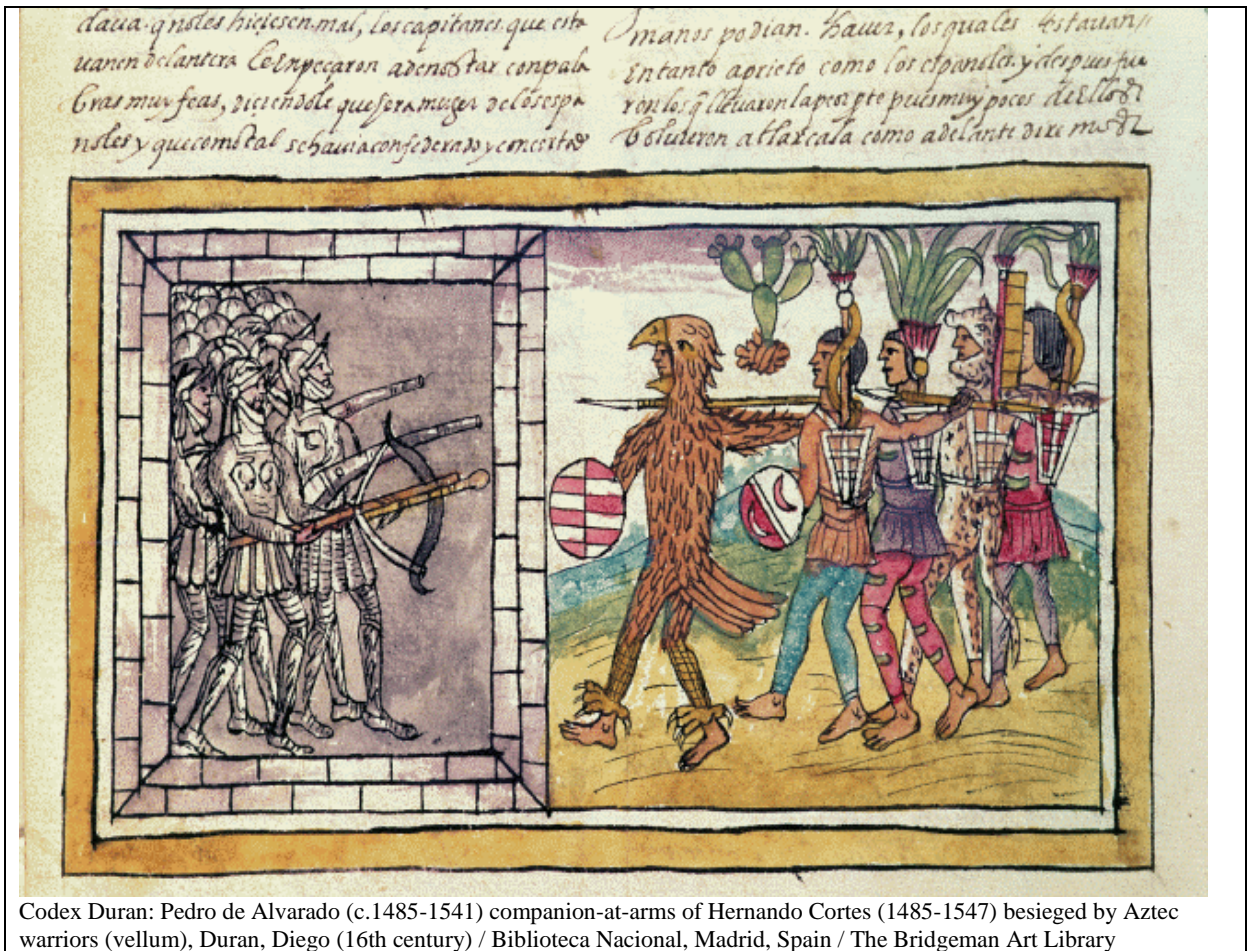 daua. q̃ noles hiçiesen. mal, los capitanes. que esta
uan en delantera le enpeçaron a denostar con pala
bras muy feas, diciendole que era muger de los espa
ñoles y que como tal se hauia confederado y concertado
manos podian. hauer, los quales estauan
en tanto aprieto como los españoles. y despues fue
ron los q̃ lleuaron la peor pte pues muy pocos dellos
boluieron a tlaxcala como adelante diremos
Codex Duran: Pedro de Alvarado (c.1485-1541) companion-at-arms of Hernando Cortes (1485-1547) besieged by Aztec
warriors (vellum), Duran, Diego (16th century) / Biblioteca Nacional, Madrid, Spain / The Bridgeman Art Library